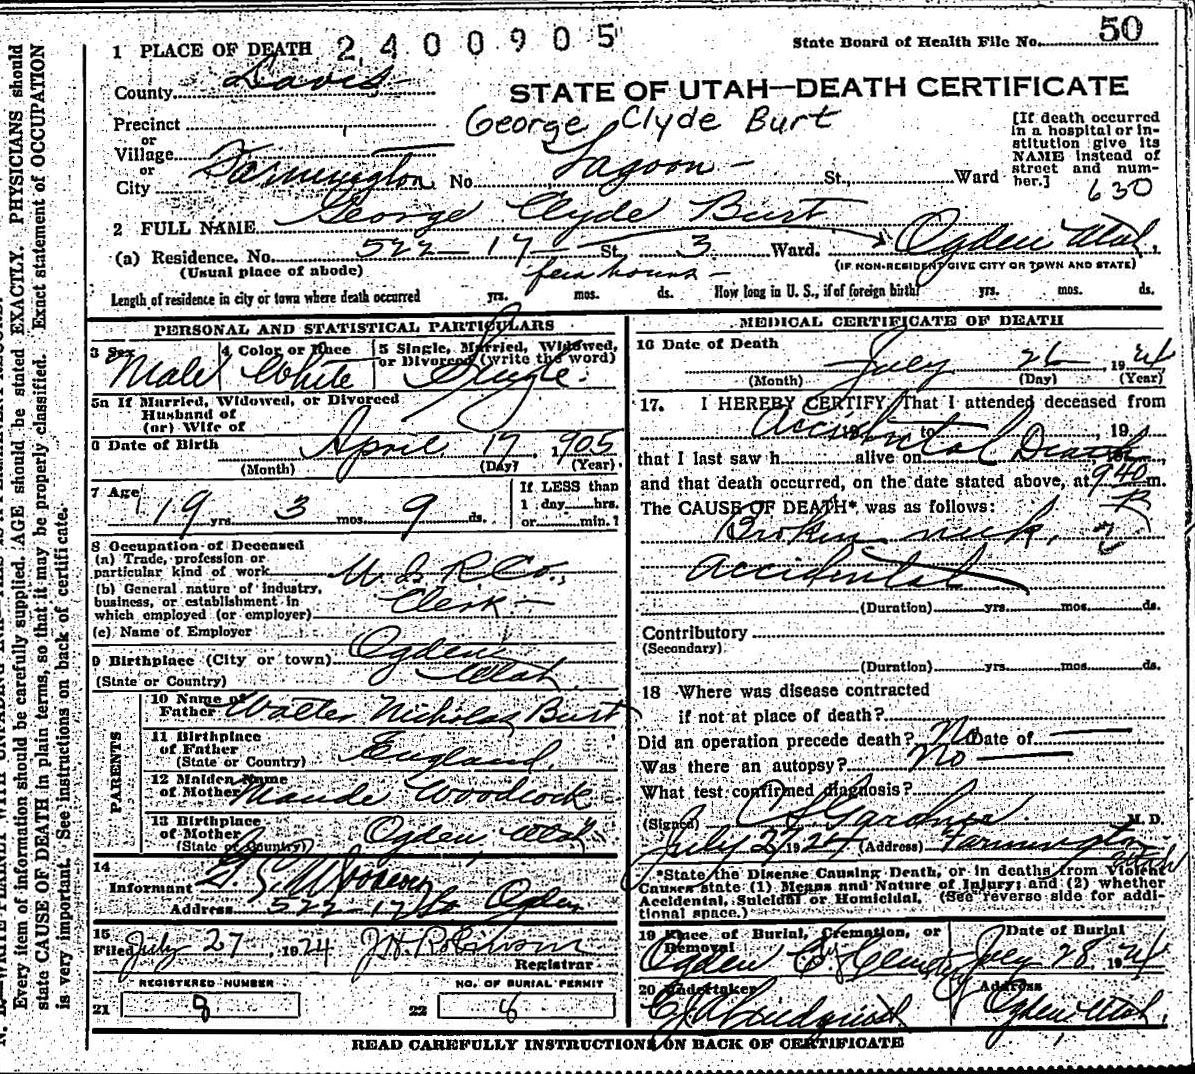 1 PLACE OF DEATH 2400905
State Board of Health File No. 50
County Davis
STATE OF UTAH—DEATH CERTIFICATE
Precinct
George Clyde Burt
or
Village
or
City Farmington No. Lagoon — St., Ward
[If death occurred
in a hospital or in-
stitution give its
NAME instead of
street and num-
ber.]
630
2 FULL NAME George Clyde Burt
(a) Residence. No. 522—17— St. 3 Ward. Ogden Utah.
(Usual place of abode)
(IF NON-RESIDENT GIVE CITY OR TOWN AND STATE)
few hours —
Length of residence in city or town where death occurred yrs. mos. ds. How long in U. S., if of foreign birth? yrs. mos. ds.
PERSONAL AND STATISTICAL PARTICULARS
3 Sex 4 Color or Race 5 Single, Married, Widowed,
or Divorced (write the word)
Male White Single.
5a If Married, Widowed, or Divorced
Husband of
(or) Wife of
6 Date of Birth April 17, 1905
(Month) (Day) (Year)
7 Age
19 yrs. 3 mos. 9 ds.
If LESS than
1 day hrs.
or min.?
8 Occupation of Deceased
(a) Trade, profession or
particular kind of work
(b) General nature of industry,
business, or establishment in
which employed (or employer)
Clerk —
(c) Name of Employer
9 Birthplace (City or town) Ogden
(State or Country) Utah.
PARENTS
10 Name of
Father Walter Nicholas Burt
11 Birthplace
of Father
(State or Country) England.
12 Maiden Name
of Mother Maude Woodcock
13 Birthplace
of Mother
(State or Country) Ogden, Utah
14
Informant
Address 522—17 St Ogden
15
Filed July 27, 1924 J H Robinson
Registrar
REGISTERED NUMBER NO. OF BURIAL PERMIT
21 8 22 6
MEDICAL CERTIFICATE OF DEATH
16 Date of Death
July 26 1924
(Month) (Day) (Year)
17. I HEREBY CERTIFY, That I attended deceased from
to 19
Accidental Death
that I last saw h alive on
and that death occurred, on the date stated above, at 9 40 m.
The CAUSE OF DEATH* was as follows:
Broken neck,
Accidental
(Duration) yrs. mos. ds.
Contributory
(Secondary)
(Duration) yrs. mos. ds.
18 Where was disease contracted
if not at place of death?
Did an operation precede death? No Date of —
Was there an autopsy? No —
What test confirmed diagnosis?
(Signed) Gardner M. D.
July 27 1924 (Address) Farmington
Utah
*State the Disease Causing Death, or in deaths from Violent
Causes state (1) Means and Nature of Injury; and (2) whether
Accidental, Suicidal or Homicidal. (See reverse side for addi-
tional space.)
19 Place of Burial, Cremation, or
Removal
Date of Burial
Ogden Cy Cemetery July 28, 1924
20 Undertaker Address
Lindquist Ogden, Utah.
READ CAREFULLY INSTRUCTIONS ON BACK OF CERTIFICATE
Every item of information should be carefully supplied. AGE should be stated EXACTLY. PHYSICIANS should
state CAUSE OF DEATH in plain terms, so that it may be properly classified. Exact statement of OCCUPATION
is very important. See instructions on back of certificate.